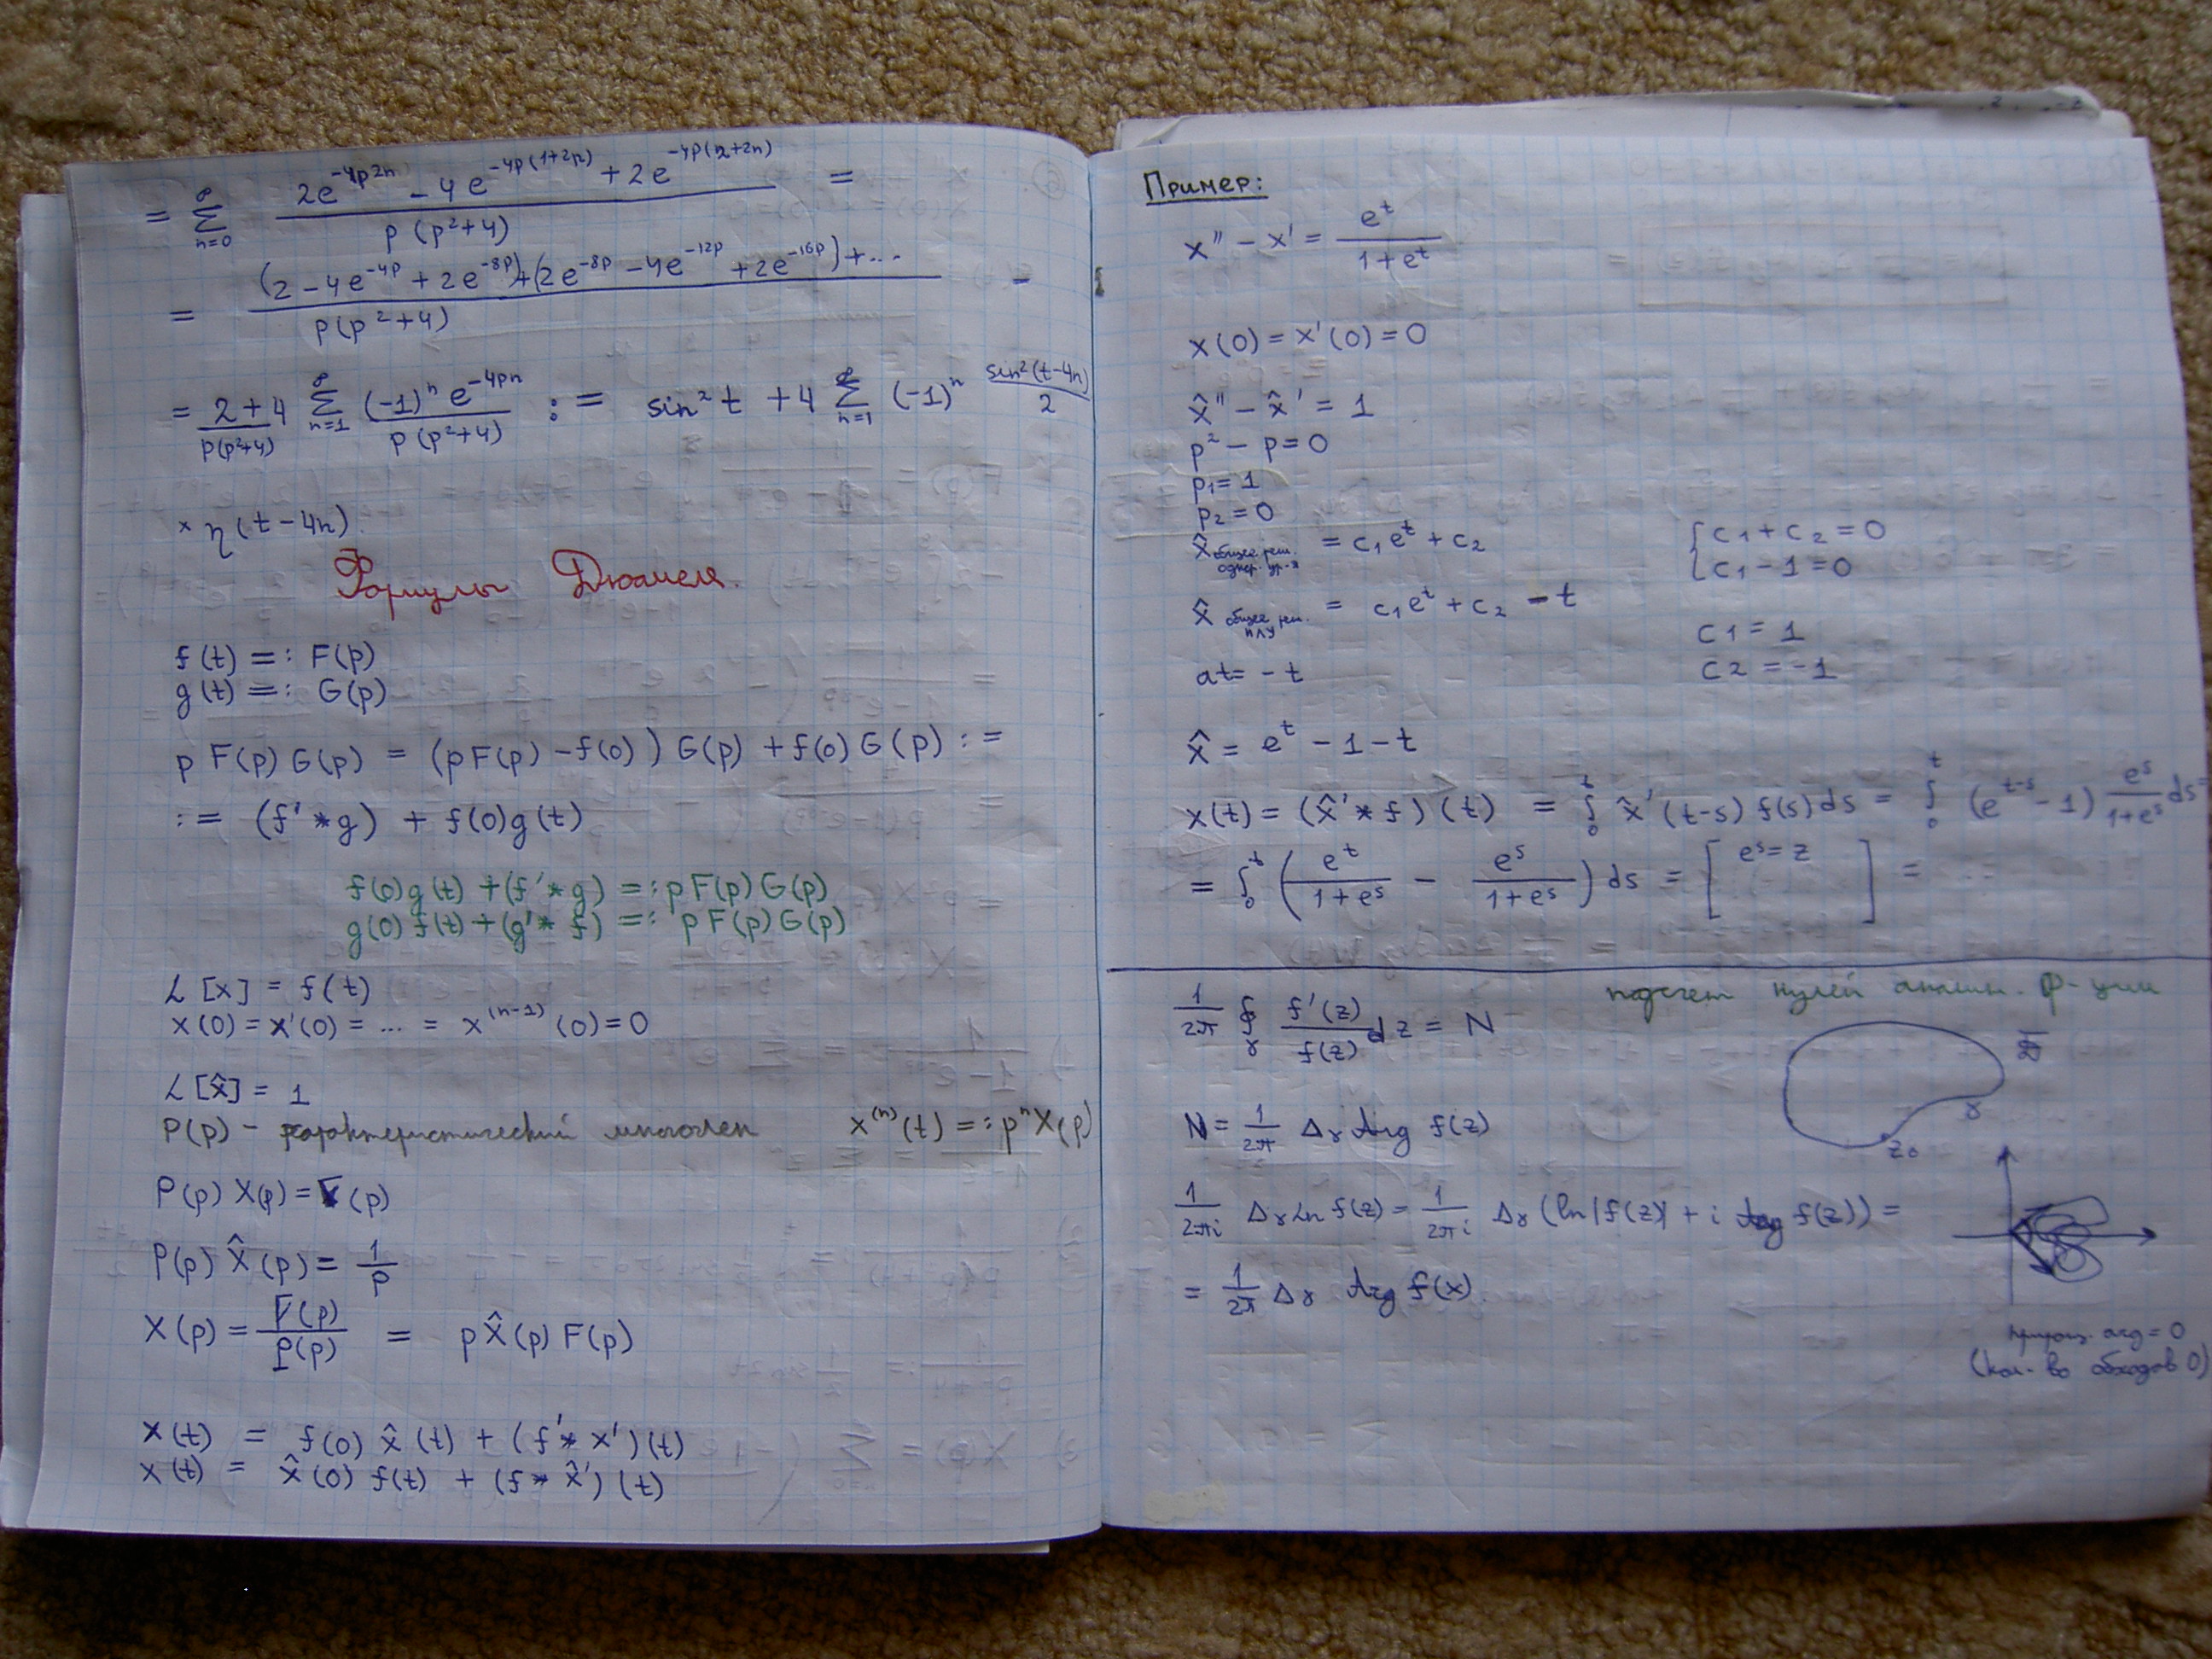 = ∑_{n=0}^{∞} (2e^{-4p2n} - 4e^{-4p(1+2n)} + 2e^{-4p(2+2n)}) / (p(p²+4)) =
= ((2-4e^{-4p}+2e^{-8p})+(2e^{-8p}-4e^{-12p}+2e^{-16p})+...) / (p(p²+4)) -
= (2+4)/(p(p²+4)) ∑_{n=1}^{∞} ((-1)^n e^{-4pn})/(p(p²+4)) := sin²t + 4 ∑_{n=1}^{∞} (-1)^n sin²(t-4n)/2
× η(t-4n).
Формулы Дюамеля.
f(t) =: F(p)
g(t) =: G(p)
p F(p) G(p) = (pF(p) - f(0)) G(p) + f(0) G(p) :=
:= (f' * g) + f(0)g(t)
f(0)g(t) + (f' * g) =: pF(p)G(p)
g(0)f(t) + (g' * f) =: pF(p)G(p)
L[x] = f(t)
x(0) = x'(0) = ... = x^{(n-1)}(0) = 0
L[x̂] = 1
P(p) - характеристический многочлен x^{(n)}(t) =: p^n X(p)
P(p) X(p) = F(p)
P(p) X̂(p) = 1/p
X(p) = F(p)/P(p) = p X̂(p) F(p)
x(t) = f(0) x̂(t) + (f' * x')(t)
x(t) = x̂(0) f(t) + (f * x̂')(t)
Пример:
x'' - x' = e^t/(1+e^t)
x(0) = x'(0) = 0
x̂'' - x̂' = 1
p² - p = 0
p1 = 1
p2 = 0
x̂ общее реш. однор. ур-я = c1 e^t + c2
{ c1 + c2 = 0
{ c1 - 1 = 0
x̂ общее реш. НЛУ = c1 e^t + c2 - t
c1 = 1
at = -t
c2 = -1
x̂ = e^t - 1 - t
x(t) = (x̂' * f)(t) = ∫_0^t x̂'(t-s) f(s) ds = ∫_0^t (e^{t-s} - 1) e^s/(1+e^s) ds =
= ∫_0^t (e^t/(1+e^s) - e^s/(1+e^s)) ds = [e^s = z] = ...
подсчет нулей аналит. ф-ции
1/2π ∮_γ f'(z)/f(z) dz = N
D
γ
z0
N = 1/2π Δγ Arg f(z)
1/2πi Δγ Ln f(z) = 1/2πi Δγ (ln|f(z)| + i Arg f(z)) =
= 1/2π Δγ Arg f(x).
прирощ. arg = 0
(кол-во обходов 0)